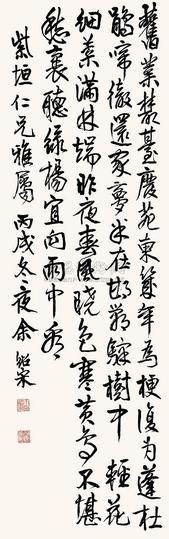 舊業叢臺廢苑東幾年為梗復為蓬杜
鵑啼徹還家夢半在邯鄲驛樹中 輕花
細葉滿林端昨夜春風曉色寒黃鳥不堪
愁裏聽綠楊宜向雨中看
紫垣仁兄雅屬 丙戌冬夜余紹宋